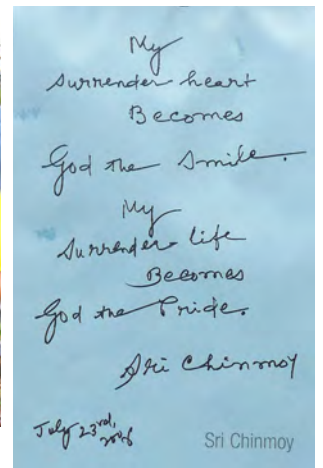 My
Surrender heart
Becomes
God the Smile.
My
Surrender life
Becomes
God the Pride.
Sri Chinmoy
July 23rd,
2006
Sri Chinmoy